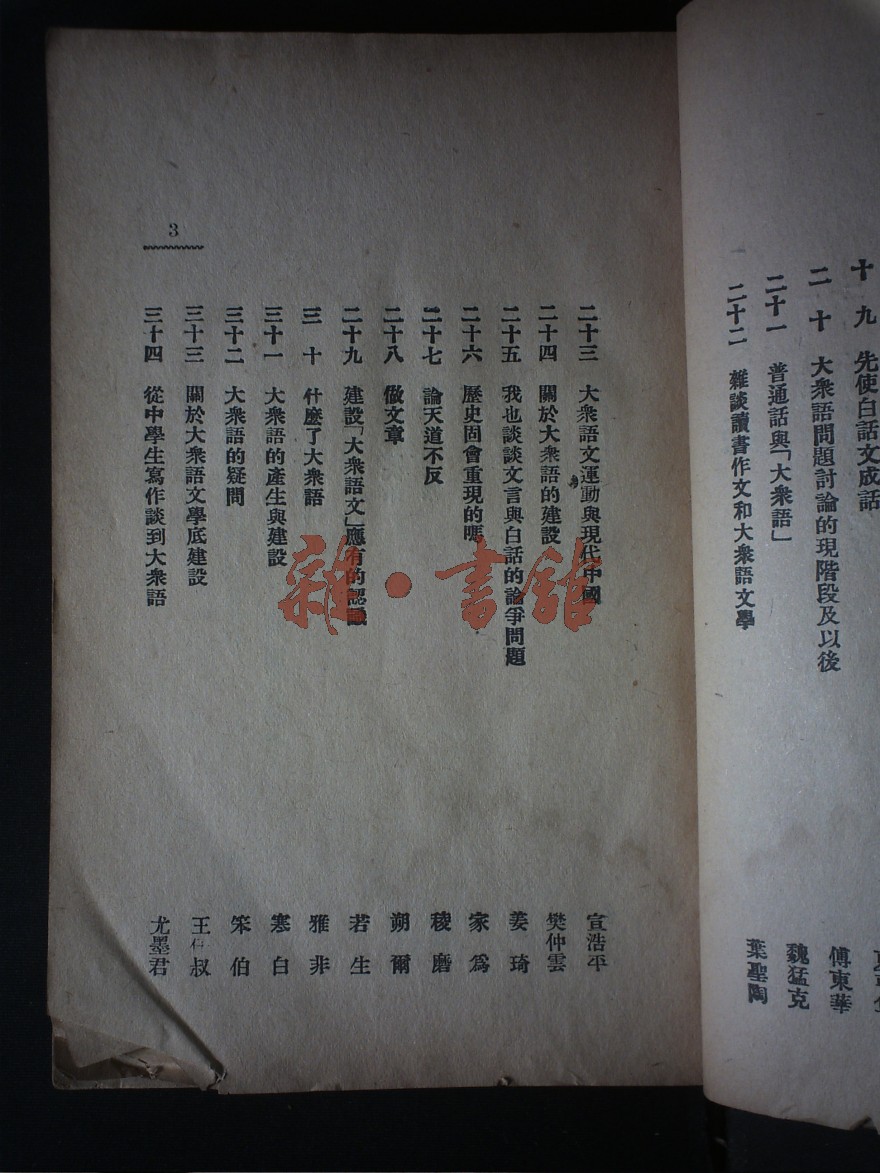 十九 先使白話文成話
二十 大衆語問題討論的現階段及以後 傅東華
二十一 普通話與「大衆語」 魏猛克
二十二 雜談讀書作文和大衆語文學 葉聖陶
3
二十三 大衆語文運動與現代中國 宣浩平
二十四 關於大衆語的建設 樊仲雲
二十五 我也談談文言與白話的論爭問題 姜琦
二十六 歷史固會重現的嗎 家爲
二十七 論天道不反 稜磨
二十八 做文章 朔爾
二十九 建設「大衆語文」應有的認識 若生
三十 什麼了大衆語 雅非
三十一 大衆語的產生與建設 寒白
三十二 大衆語的疑問 笨伯
三十三 關於大衆語文學底建設 王 叔
三十四 從中學生寫作談到大衆語 尤墨君
雜·書館